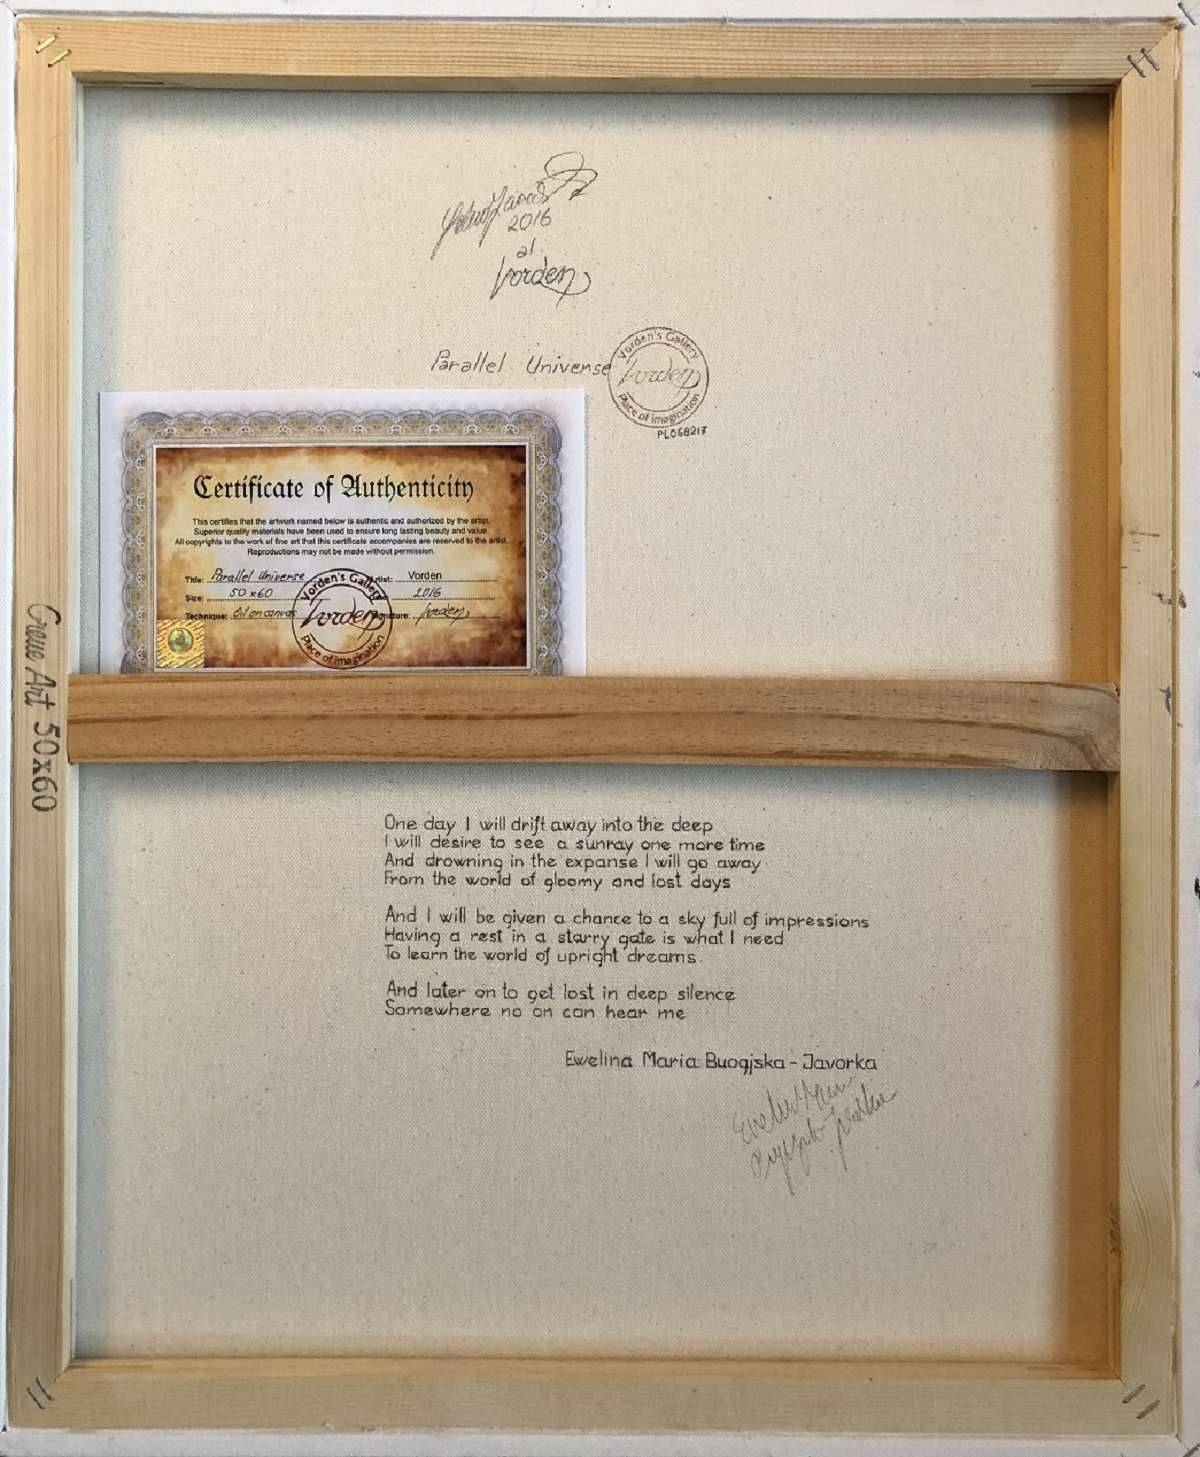 2016
al
Vorden
Parallel Universe
Vorden's Gallery
Vorden
Place of Imagination
PL068217
Certificate of Authenticity
This certifies that the artwork named below is authentic and authorized by the artist.
Superior quality materials have been used to ensure long lasting beauty and value.
All copyrights to the work of fine art that this certificate accompanies are reserved to the artist.
Reproductions may not be made without permission.
Title: Parallel Universe Artist: Vorden
Size: 50x60 2016
Technique: Oil on canvas Signature: Vorden
Vorden's Gallery
Vorden
Place of Imagination
Creme Art 50x60
One day I will drift away into the deep
I will desire to see a sunray one more time
And drowning in the expanse I will go away
From the world of gloomy and lost days
And I will be given a chance to a sky full of impressions
Having a rest in a starry gate is what I need
To learn the world of upright dreams.
And later on to get lost in deep silence
Somewhere no on can hear me
Ewelina Maria Buogjska - Javorka